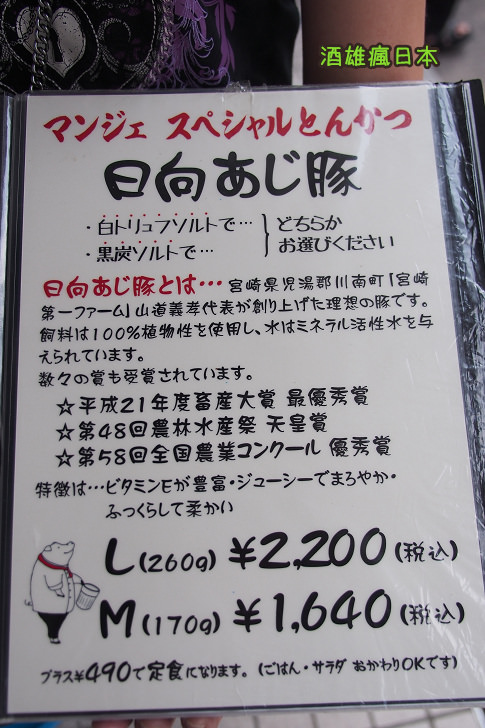 酒雄瘋日本
マンジェ スペシャルとんかつ
日向あじ豚
・白トリュフソルトで…
・黒炭ソルトで…
どちらか
お選びください
日向あじ豚とは… 宮崎県児湯郡川南町「宮崎
第一ファーム」山道義孝代表が創り上げた理想の豚です。
飼料は100%植物性を使用し、水はミネラル活性水を与
えられています。
数々の賞も受賞されています。
☆平成21年度畜産大賞 最優秀賞
☆第48回農林水産祭 天皇賞
☆第58回全国農業コンクール 優秀賞
特徴は…ビタミンEが豊富・ジューシーでまろやか・
ふっくらして柔かい
L(260g) ¥2,200(税込)
M(170g) ¥1,640(税込)
プラス¥490で定食になります。(ごはん・サラダ おかわりOKです)